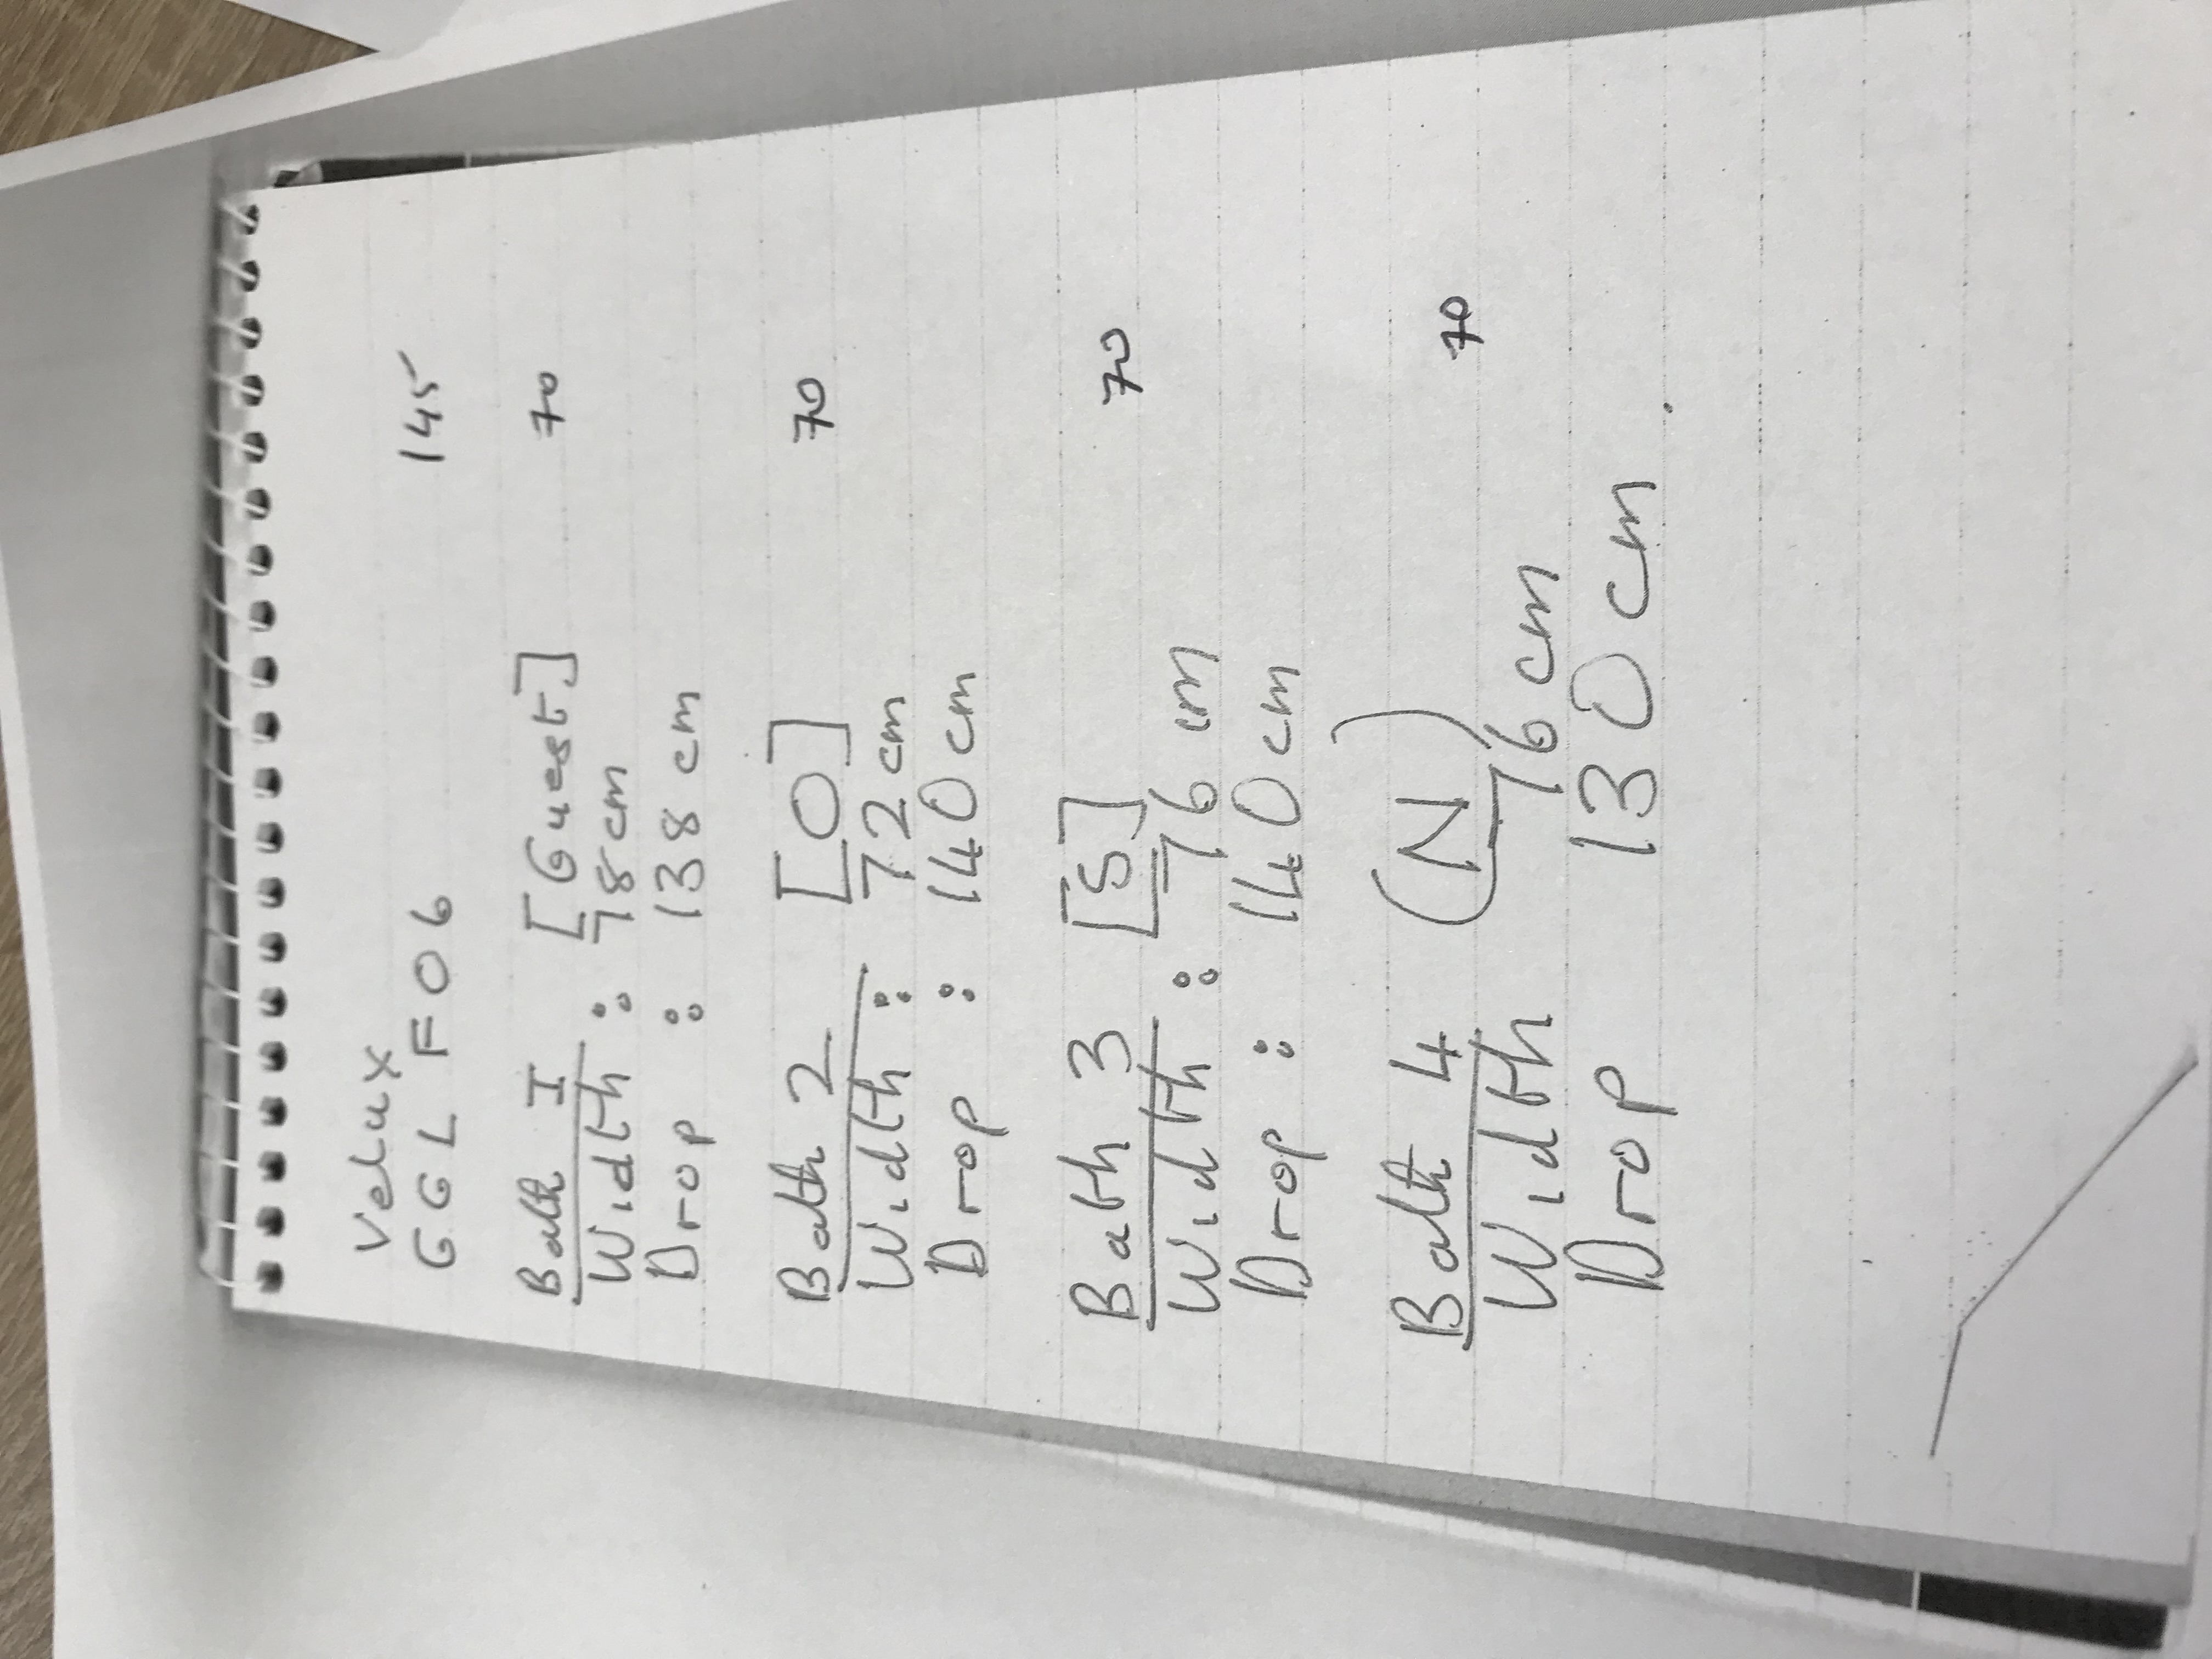 Velux
GGL F06 145
Bath I [Guest] 70
Width : 78cm
Drop : 138 cm
Bath 2 [O] 70
Width : 72cm
Drop : 140cm
Bath 3 [S] 70
Width : 76 cm
Drop : 140cm
Bath 4 (N) 70
Width 76cm
Drop 130cm.